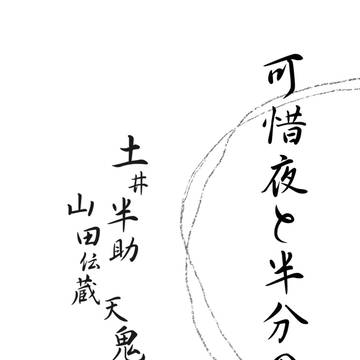 可惜夜と半分の
土井半助
天鬼
山田伝蔵